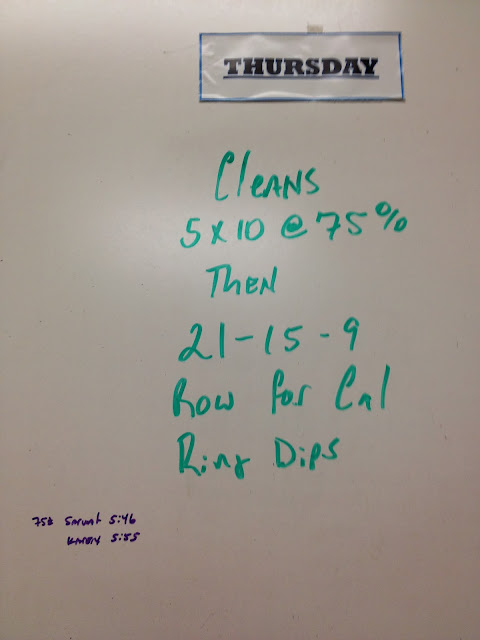 THURSDAY
CleANS
5x10 @ 75%
THEN
21-15-9
Row for Cal
Ring Dips
5:46
5:55